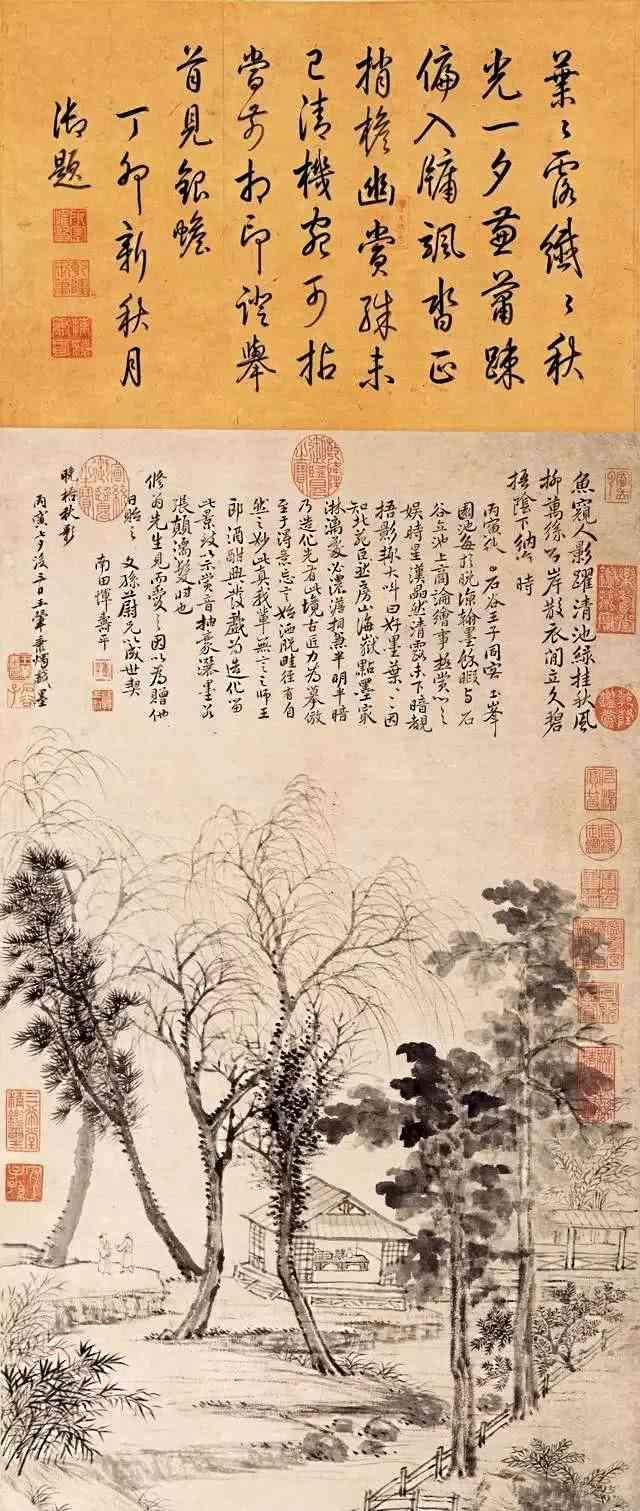 葉〻露纖〻秋
光一夕兼蕭踈
偏入牖颯沓正
捎檐幽賞殊未
已清機宛可拈
當前相印證舉
首見銀蟾
丁卯新秋月
御題
魚窺人影躍清池綠挂秋風
柳萬絲石岸散衣閒立久碧
梧陰下納時
丙寅秋石谷王子同客玉峯
園池每於晚涼翰墨餘暇與石
谷立池上商論繪事極賞心之
娛時星漢晶然清露未下暗覩
梧影輒大叫曰好墨葉〻因
知北苑巨然房山海嶽點墨最
淋漓處必濃澹相兼半明半暗
乃造化先有此境古匠力為摹倣
至于得意忘言始洒脫畦徑有自
然之妙此真我輩無言之師王
郎酒酣興發戲為造化留
此景致以示賞音抽豪灑墨若
張顛濡髮時也
脩翁先生見而愛之因以為贈他
日貽之文孫蔚兄以誠世契
南田惲壽平
晚梧秋影
丙寅七夕後三日王翬秉燭戲墨